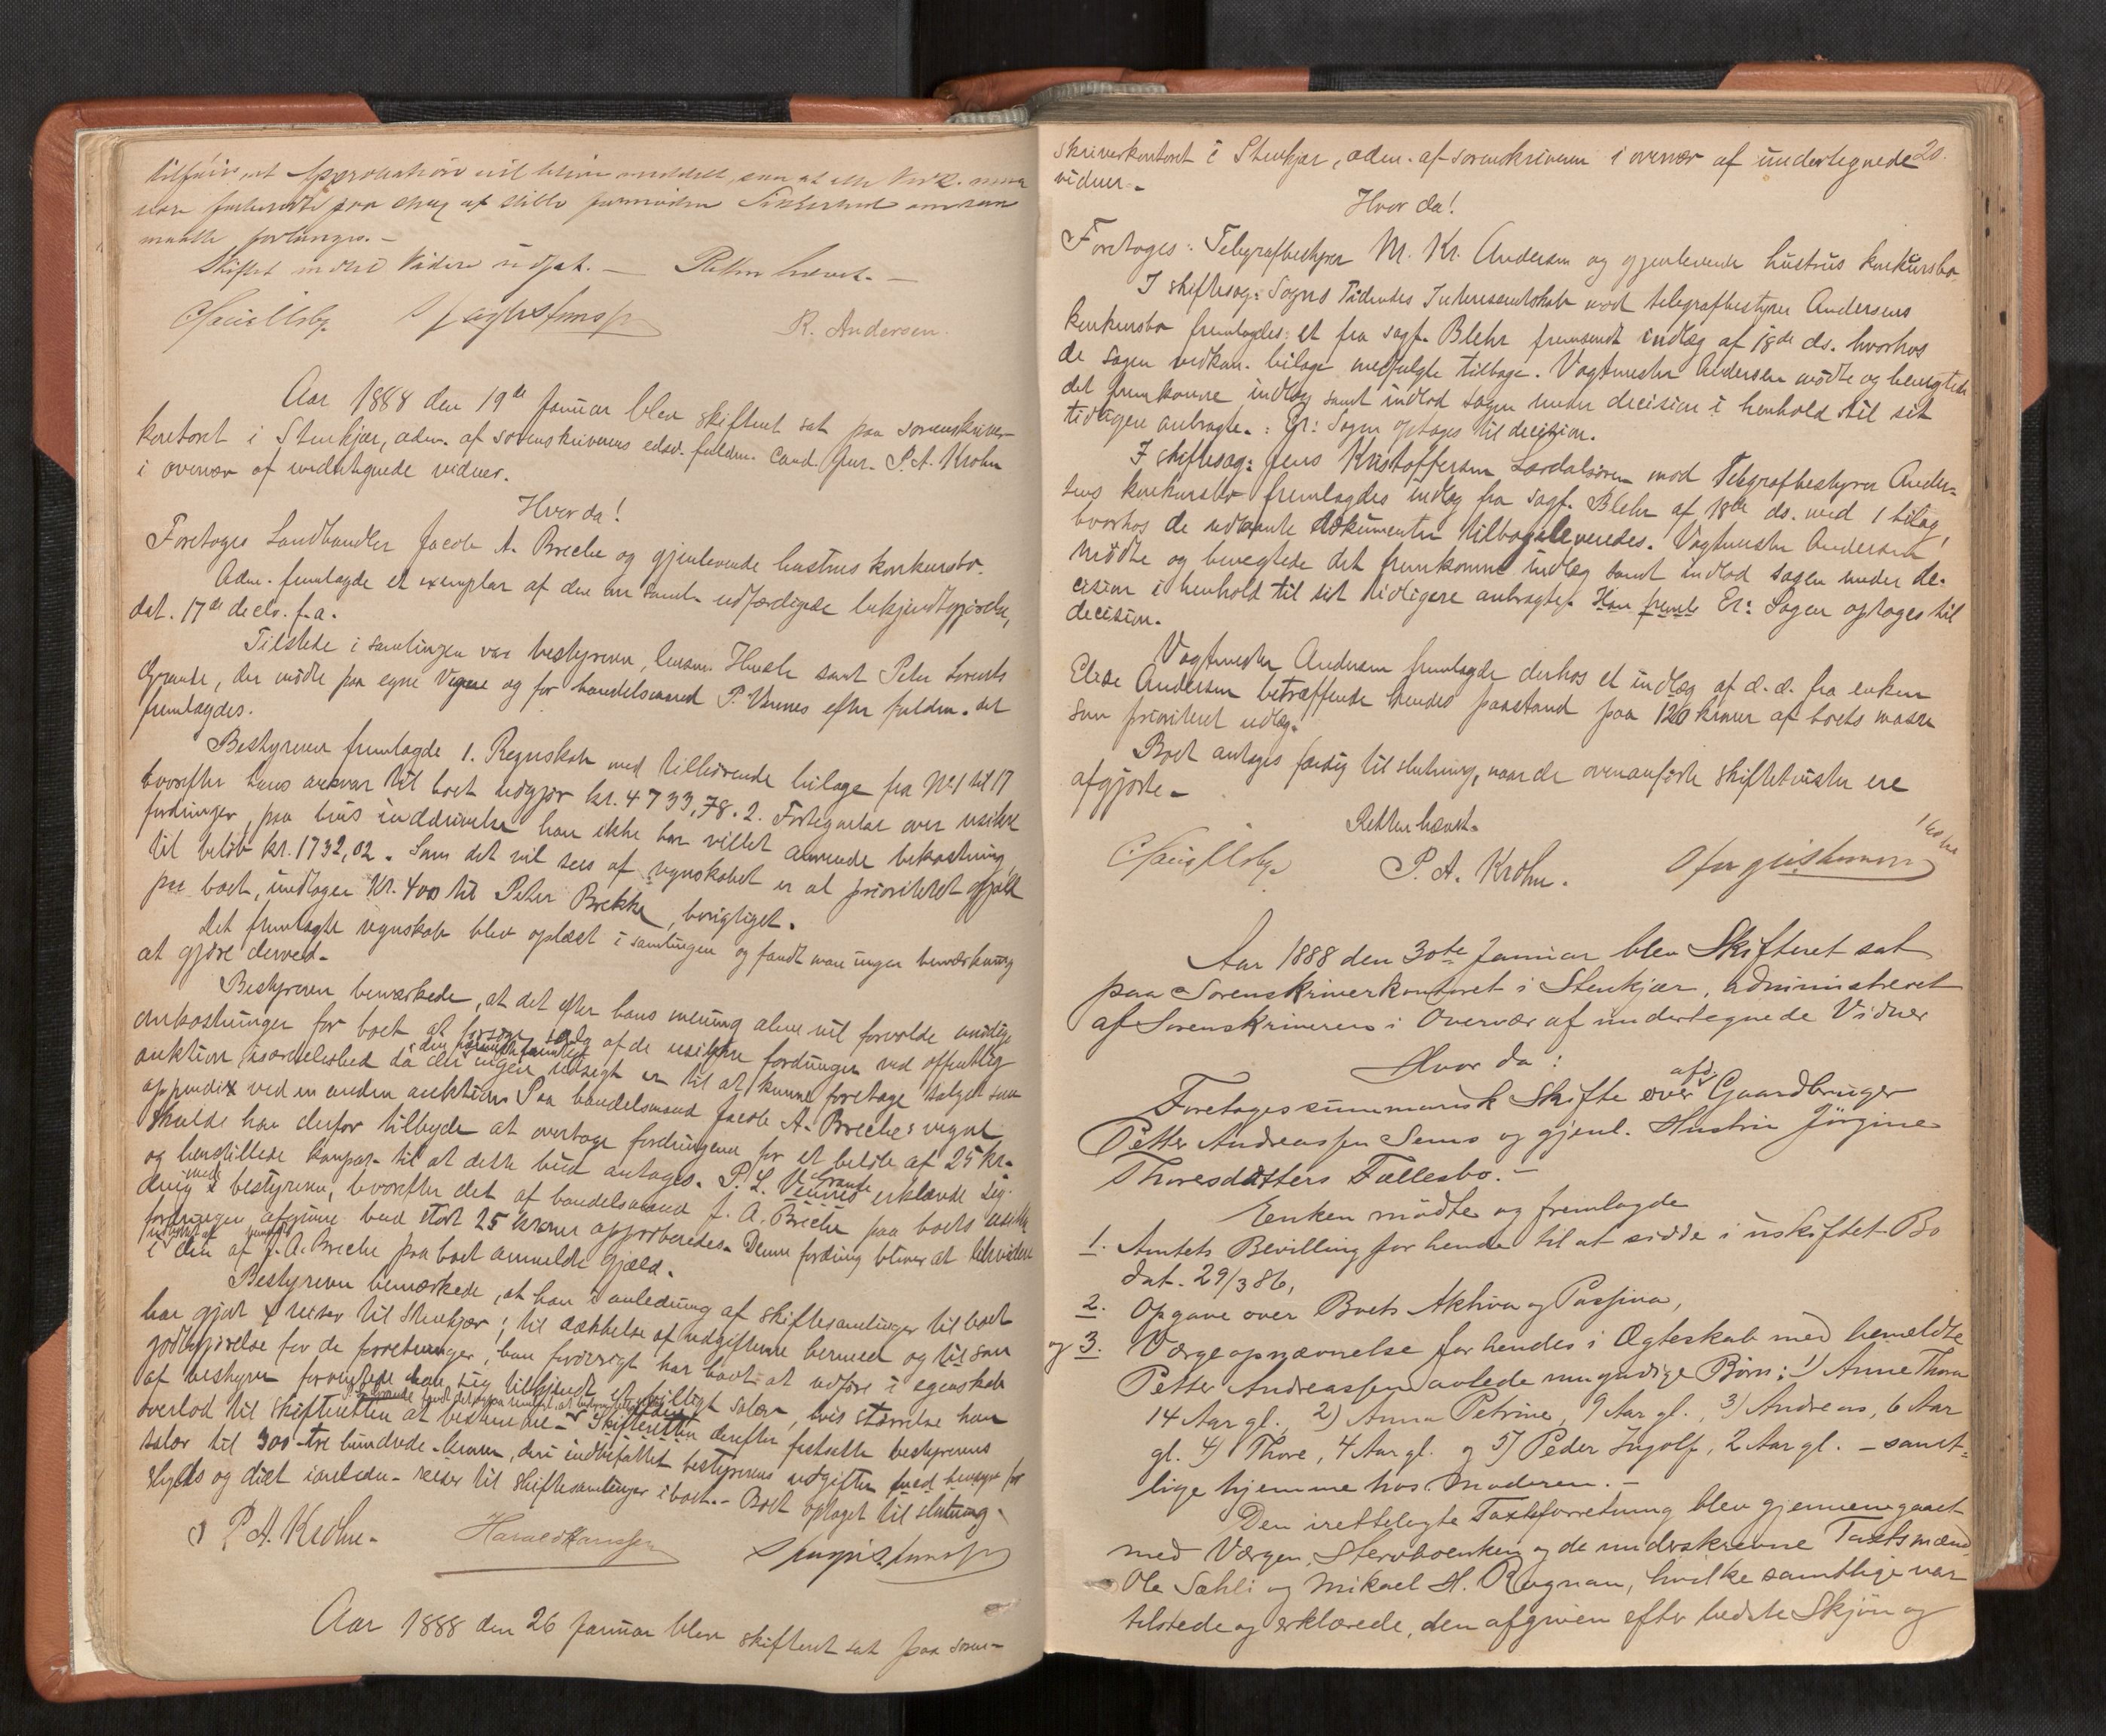 Skiftet indtil Videre udsat. — Retten hævet. —
R. Andersen.
Aar 1888 den 19de Januar blev skifteret sat paa sorenskriver-
kontoret i Stenkjær, adm. af sorenskriverens edsv. fuldm. Cand. jur. P. A. Krohn
i overvær af undertegnede vidner.
Hvor da!
Foretoges Landhandler Jacob A. Breche og gjenlevende hustrus konkursbo.
Adm. fremlagde et exemplar af den om saml. udfærdigede bekjendtgjørelse,
dat. 17de decbr. f. a.
Tilstede i samlingen var bestyreren, lensm. samt Peter Lorents
Grande, der mødte paa egne Vegne og for handelsmand P. Vennes efter fuldm. der
fremlagdes.
Bestyreren fremlagde 1. Regnskab med tilhørende bilage fra No 1 til 17
hvorefter hans ansvar til boet udgjør kr. 4733,78. 2. Fortegnelse over usikre
fordringer, paa hvis inddrivelse han ikke har villet anvende bekostning
til beløb kr. 1732,02. Som det vil sees af regnskabet er al prioriteret gjæld
paa boet, undtagen Kr. 400 til Peter Brekke, berigtiget.
Det fremlagte regnskab blev oplæst i samlingen og fandt man ingen bemærkning
at gjøre derved.
Bestyreren bemærkede, at det efter hans mening alene vil forvolde unødige
omkostninger for boet at forsøge salg af de usikre fordringer ved offentlig
auktion, isærdeleshed da der ingen udsigt er til at kunne foretage salget som
appendix ved en anden auktion. Paa handelsmand Jacob A. Breches vegne
skulde han derfor tilbyde at overtage fordringerne for et beløb af 25 kr.
og henstillede til at dette bud antages. P. L. Grande erklærede sig
enig med bestyreren, hvorefter det af handelsmand J. A. Breche paa boets usikre
fordringer afgivne bud stort 25 kroner approberedes. Denne fordring bliver at likvidere
i den af J. A. Breche paa boet anmeldte gjæld.
Bestyreren bemærkede, at han i anledning af skiftesamlinger til boet
har gjort reiser til Stenkjær; til dækkelse af udgifterne herved og til som
godtgjørelse for de forretninger, han forøvrigt har havt at udføre i egenskab
af bestyrer forventede han sig tilkjendt et billigt salær, hvis størrelse han
overlod til skifteretten at bestemme. Skifteretten derefter fastsatte bestyrerens
salær til 300 tre hundrede kroner, deri indbefattet bestyrerens udgifter med hensyn til
skyds og diæt reiser til skiftesamlinger i boet. — Boet optaget til slutning.
P. A. Krohn. Harald Hanssen
Aar 1888 den 26 Januar blev skifteret sat paa soren-
20.
skriverkontoret i Stenkjær, adm. af sorenskriveren i overvær af undertegnede
vidner.
Hvor da!
Foretoges: Telegrafbestyrer M. Kr. Andersen og gjenlevende hustrus konkursbo.
I skiftesag: Sogns Tidendes Interessentskab mod telegrafbestyrer Andersens
konkursbo fremlagdes: et fra sagf. Blehr fremsendt indlæg af 18de ds. hvorhos
de sagen vedkom. bilage medfulgte tilbage. Vagtmester Andersen mødte og benegtede
det fremkomne indlæg samt indlod sagen under decision i henhold til sit
tidligere anbragte.: Er: Sagen optages til decision.
I skiftesag: Jens Kristoffersen Lærdalsøren mod Telegrafbestyrer Ander-
sens konkursbo fremlagdes indlæg fra sagf. Blehr af 18de ds. med 1 bilag,
hvorhos de udlaante dokumenter tilbageleveredes. Vagtmester Andersen
mødte og benegtede det fremkomne indlæg samt indlod sagen under de-
cision i henhold til sit tidligere anbragte. Han freml. Er: Sagen optages til
decision.
Vagtmester Andersen fremlagde derhos et indlæg af d. d. fra enken
Elise Andersen betræffende hendes paastand paa 120 kroner af boets masse
som prioriteret udlæg.
Boet antages færdig til slutning, naar de ovenanførte skiftetvister ere
afgjorte.
Retten hævet.
P. A. Krohn.
Aar 1888 den 30te Januar blev Skifteret sat
paa Sorenskriverkontoret i Stenkjær, administreret
af Sorenskriveren i Overvær af undertegnede Vidner
Hvor da:
Foretoges summarisk Skifte over afd. Gaardbruger
Petter Andreassen Sems og gjenl. Hustru Jörgine
Thoresdatters Fællesbo. —
Enken mødte og fremlagde
1. Amtets Bevilling for hende til at sidde i uskiftet Bo
dat. 29/3 86,
2. Opgave over Boets Aktiva og Passiva,
og 3. Værgeopnævnelse for hendes i Ægteskab med bemeldte
Petter Andreassen avlede umyndige Børn: 1) Anne Thora
14 Aar gl., 2) Anna Petrine, 9 Aar gl., 3) Andreas, 6 Aar
gl. 4) Thore, 4 Aar gl. og 5) Peder Ingolf, 2 Aar gl. — samt-
lige hjemme hos Moderen. —
Den irettelagte Taxtforretning blev gjennemgaaet
med Værgen, Stervboenken og de underskrevne Taxtsmænd
Ole Sæhli og Mikael H. Rognan, hvilke samtlige var
tilstede og erklærede, den afgiven efter bedste Skjøn og